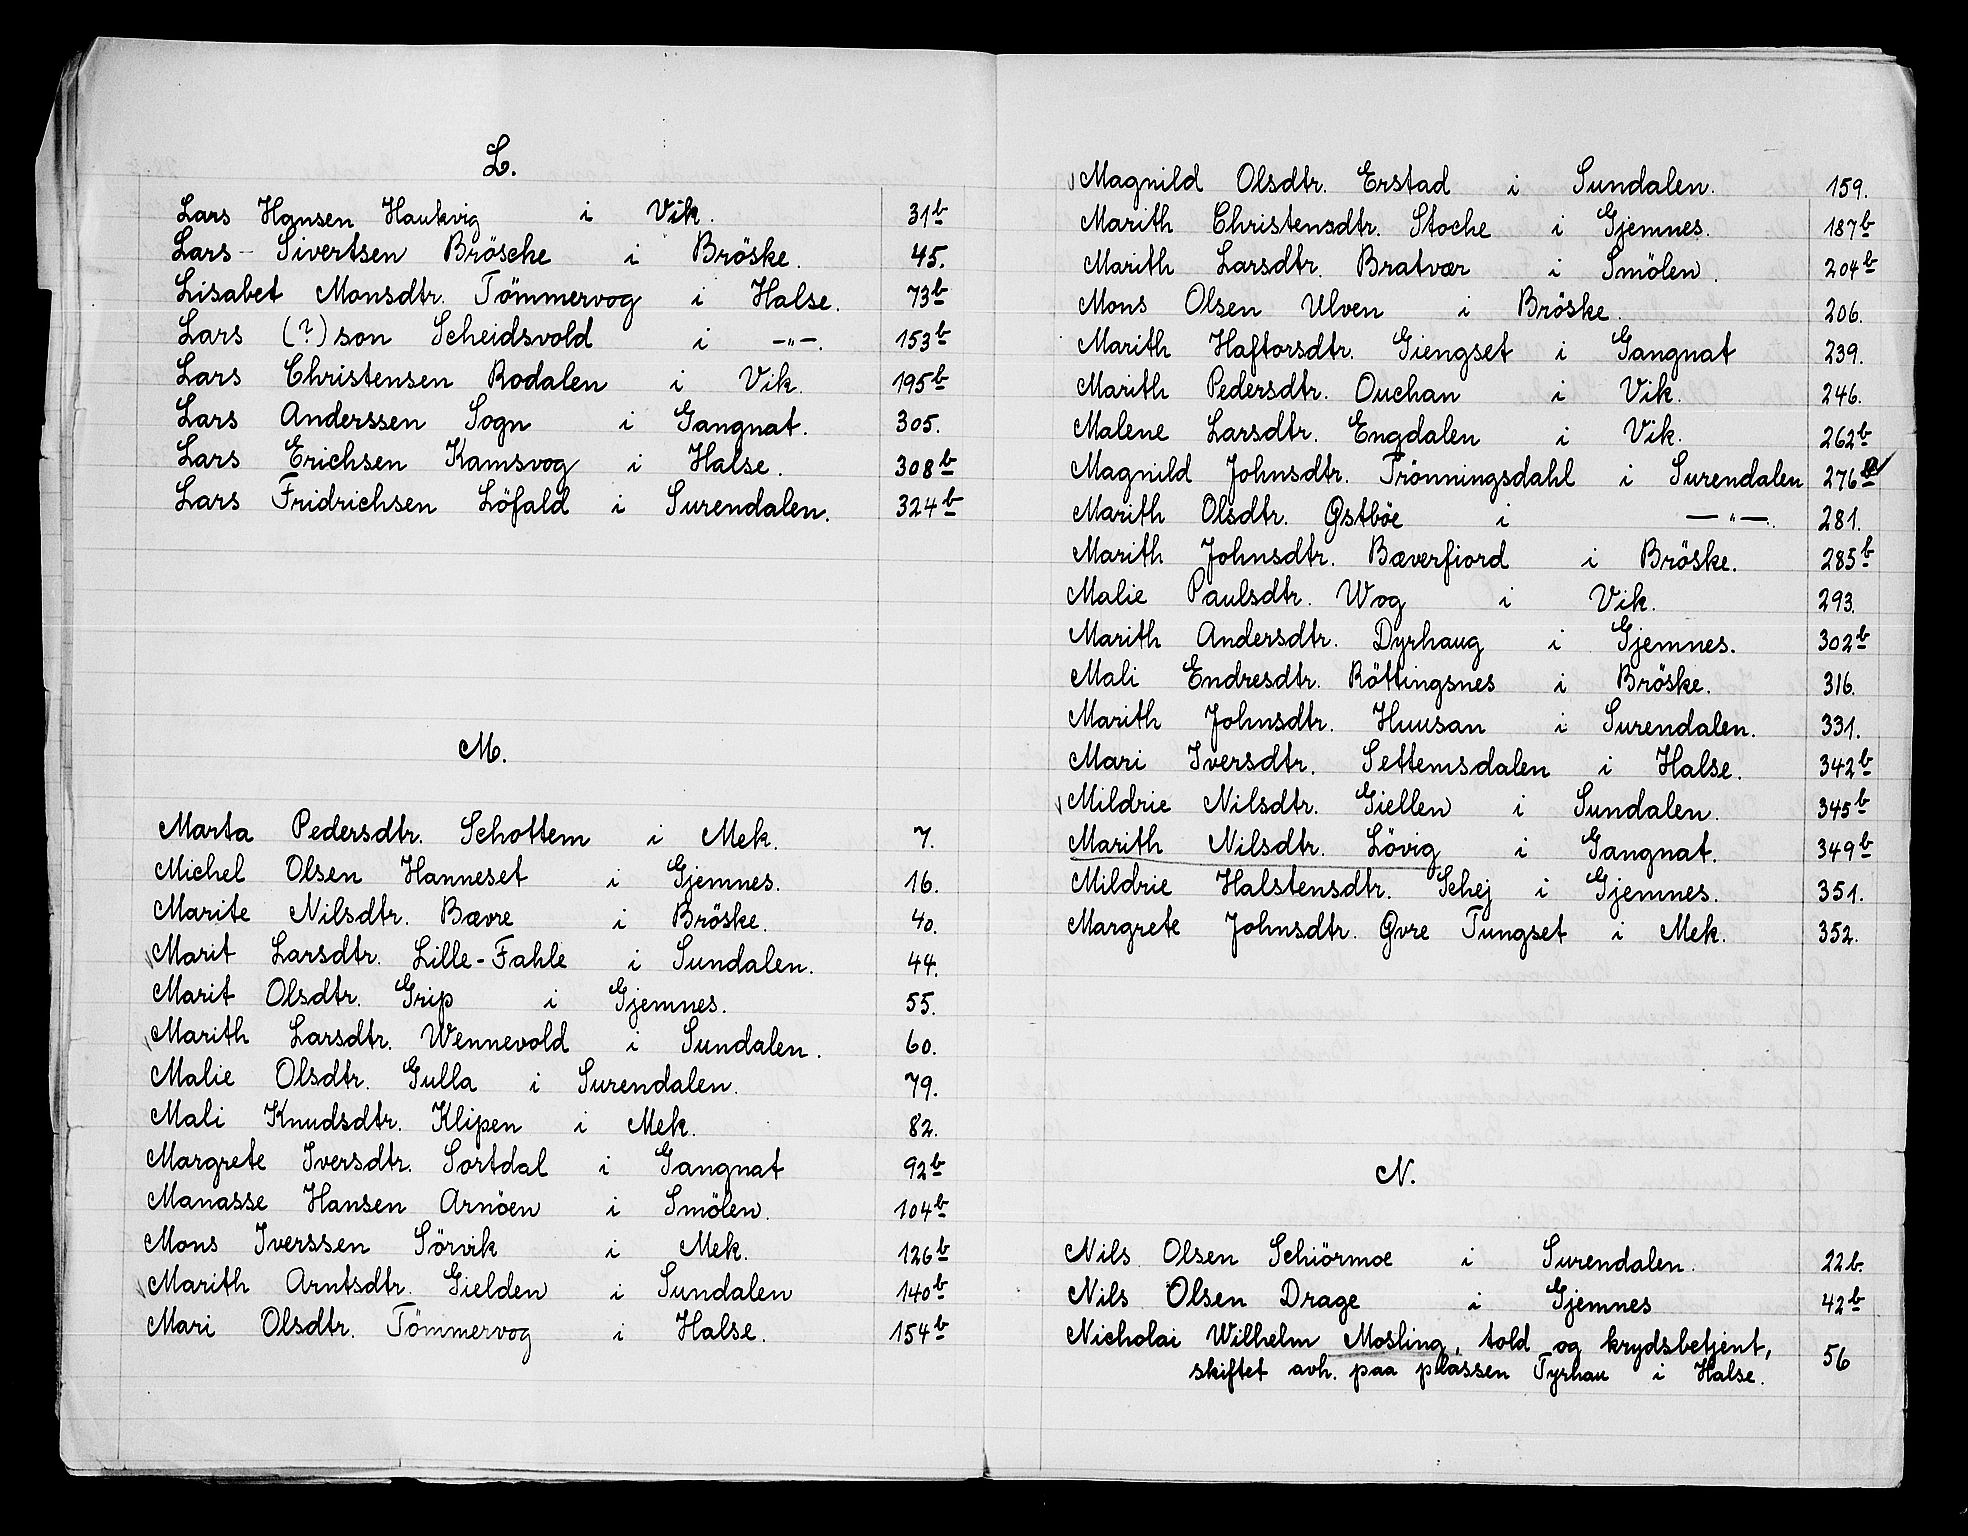 L.
Lars Hansen Haukvig i Vik. 31b
Lars Sivertsen Brösche i Bröske. 45.
Lisabet Monsdtr. Tömmervog i Halse. 73b
Lars (?)son Scheidsvold i -"-. 153b
Lars Christensen Rodalen i Vik. 195b
Lars Anderssen Sogn i Gangnat. 305.
Lars Erichsen Kamsvog i Halse. 308b
Lars Fridrichsen Löfald i Surendalen. 324b
M.
Marta Pedersdtr. Schottem i Mek. 7.
Michel Olsen Hanneset i Gjemnes. 16.
Marite Nilsdtr. Bævre i Bröske. 40.
Marit Larsdtr. Lille-Fahle i Sundalen. 44.
Marit Olsdtr. Grip i Gjemnes. 55.
Marith Larsdtr. Wennevold i Sundalen. 60.
Malie Olsdtr. Gulla i Surendalen. 79.
Mali Knudsdtr. Klipen i Mek. 82.
Margrete Iversdtr. Sortdal i Gangnat 92b
Manasse Hansen Arnöen i Smölen. 104b
Mons Iverssen Sörvik i Mek. 126b
Marith Arntsdtr. Gielden i Sundalen 140b
Mari Olsdtr. Tömmervog i Halse. 154b
Magnild Olsdtr. Erstad i Sundalen. 159.
Marith Christensdtr. Stoche i Gjemnes. 187b
Marith Larsdtr. Bratvær i Smölen. 204b
Mons Olsen Ulven i Bröske. 206.
Marith Haftorsdtr. Giengset i Gangnat 239.
Marith Pedersdtr. Ouchan i Vik. 246.
Malene Larsdtr. Engdalen i Vik. 262b
Magnild Johnsdtr. Trönningsdahl i Surendalen 276
Marith Olsdtr. Østböe i -"-. 281.
Marith Johnsdtr. Bæverfiord i Bröske. 285b
Malie Paulsdtr. Wog i Vik. 293.
Marith Andersdtr. Dyrhaug i Gjemnes. 302b
Mali Endresdtr. Röttingsnes i Bröske. 316.
Marith Johnsdtr. Huusan i Surendalen. 331.
Mari Iversdtr. Settemsdalen i Halse. 342b
Mildrie Nilsdtr. Giellen i Sundalen. 345b
Marith Nilsdtr. Lövig i Gangnat. 349b
Mildrie Halstensdtr. Schej i Gjemnes. 351.
Margrete Johnsdtr. Øvre Tungset i Mek. 352.
N.
Nils Olsen Schiörmoe i Surendalen. 22b.
Nils Olsen Drage i Gjemnes 42b
Nicholai Wilhelm Mosling, told og krydsbetjent,
skiftet avh. paa plassen Tyrhau i Halse. 56